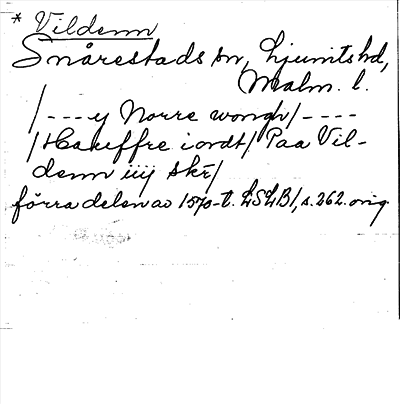 * Vildenn
Snårestads sn, Ljunits hd,
Malm. l.
/---- y Norre wongh/----
/Hakeffre iordt/ Paa Vil-
denn iiij skr/
förra delen av 1570-t. LSLB1, s. 262. orig.